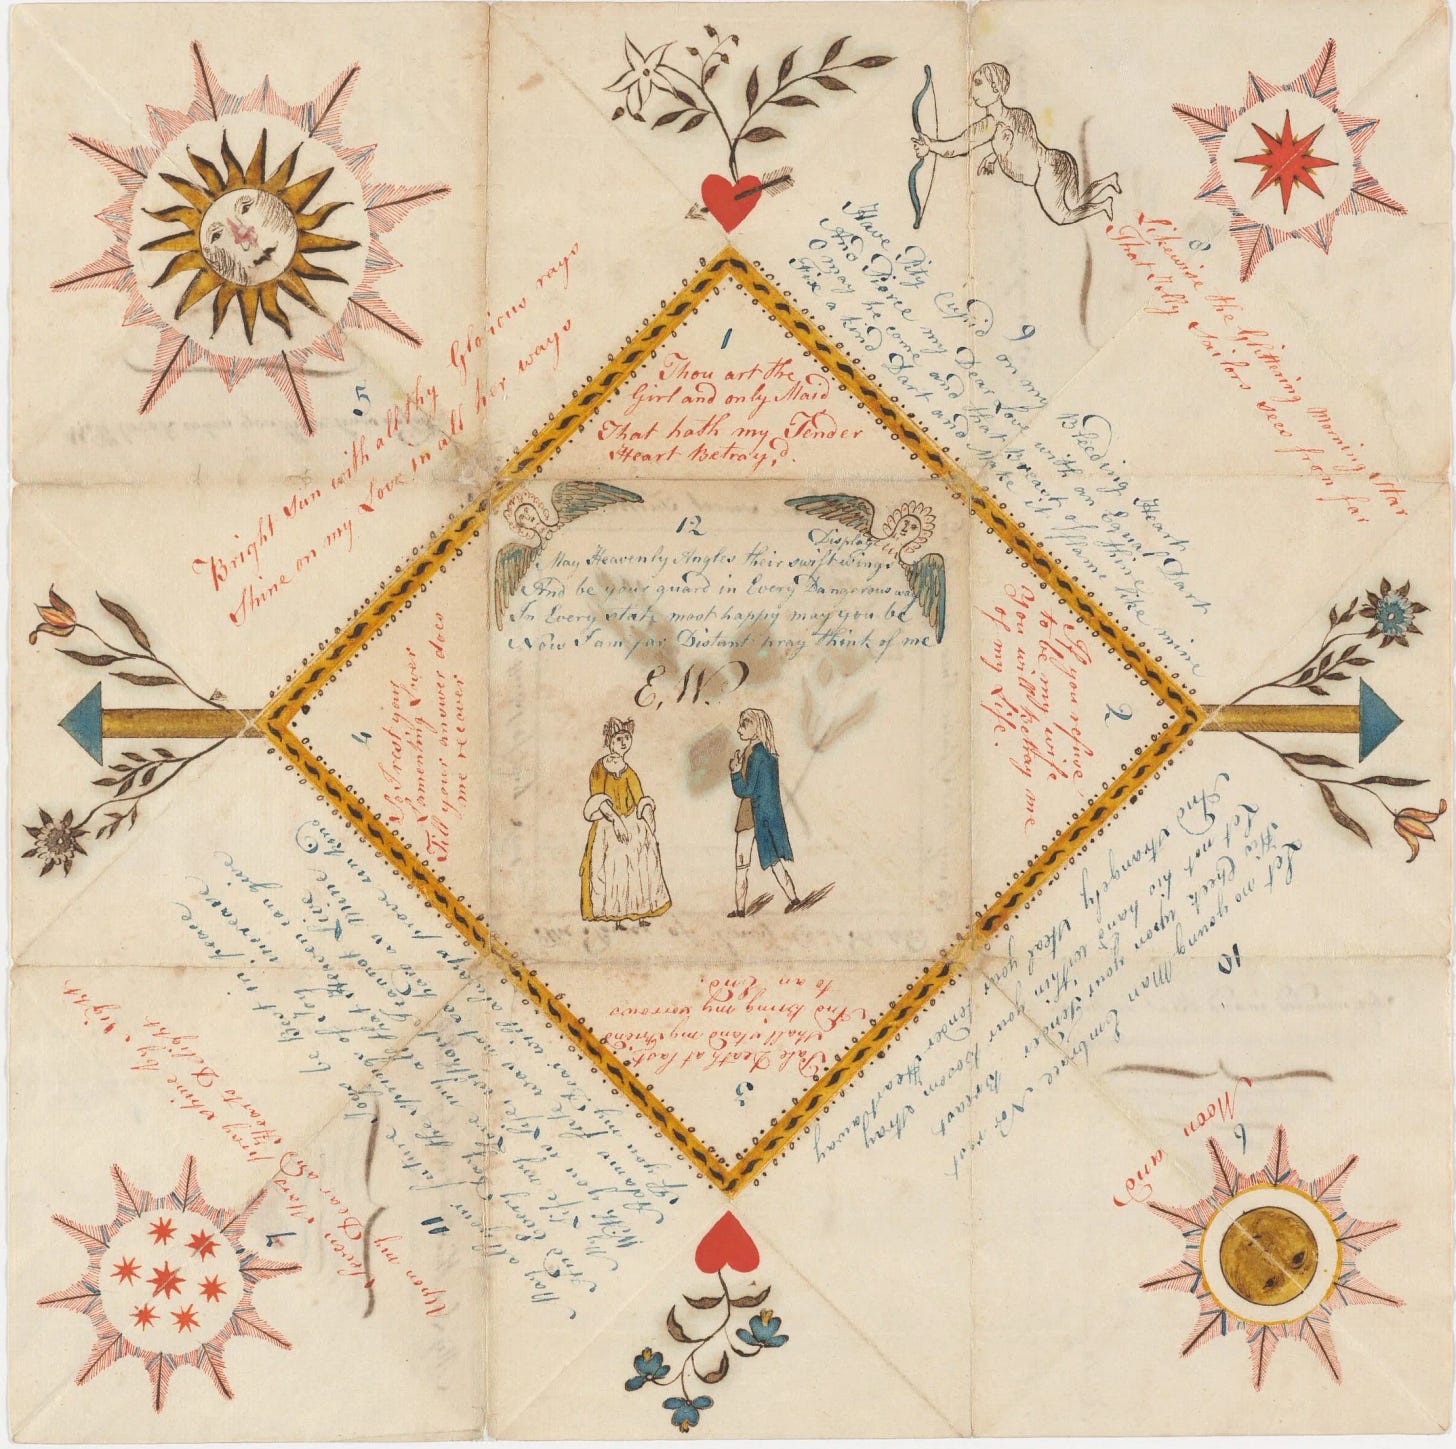 1
Thou art the
Girl and only Maid
That hath my Tender
Heart Betray,d.
2
If you refuse
to be my wife
You will betray me
of my Life.
3
Pale Death at last
Shall stand my friend
And bring my sorrows
to an End.
4
So I rest your
Lamenting Lover
Till your answer does
me recover
5
Bright Sun with all thy Glorious rays
Shine on my Love in all her ways
6
Moon and
7
Seven Stars pray shine by Night
Upon my Dear and Hearts Delight
8
Likewise the Glittering morning Star
That Jolly Sailors sees from far
9
Have Pity Cupid on my Bleeding Heart
And Pierce my Dear Love with an Equal Dart
O may he come and that breast of thine
Fix a kind Dart and Make it flame like mine
10
Let no young Man Embrace Nor rest
His Cheek upon your Tender Breast
Let not his hand within your bosom stray
And strangely steal your tender Heart away
11
May all your future Days be blest in peace
And Every Day the springs of Joy increase
My Life my Love my all that Heaven can give
With you is Life without cannot Live
my Fate was not so hard as mine
you my Dear will always prove unkind
12
May Heavenly Angles their swift wings Display
And be your guard in Every Dangerous way
In Every state most happy may you be
Now I am far Distant pray think of me
E. W.